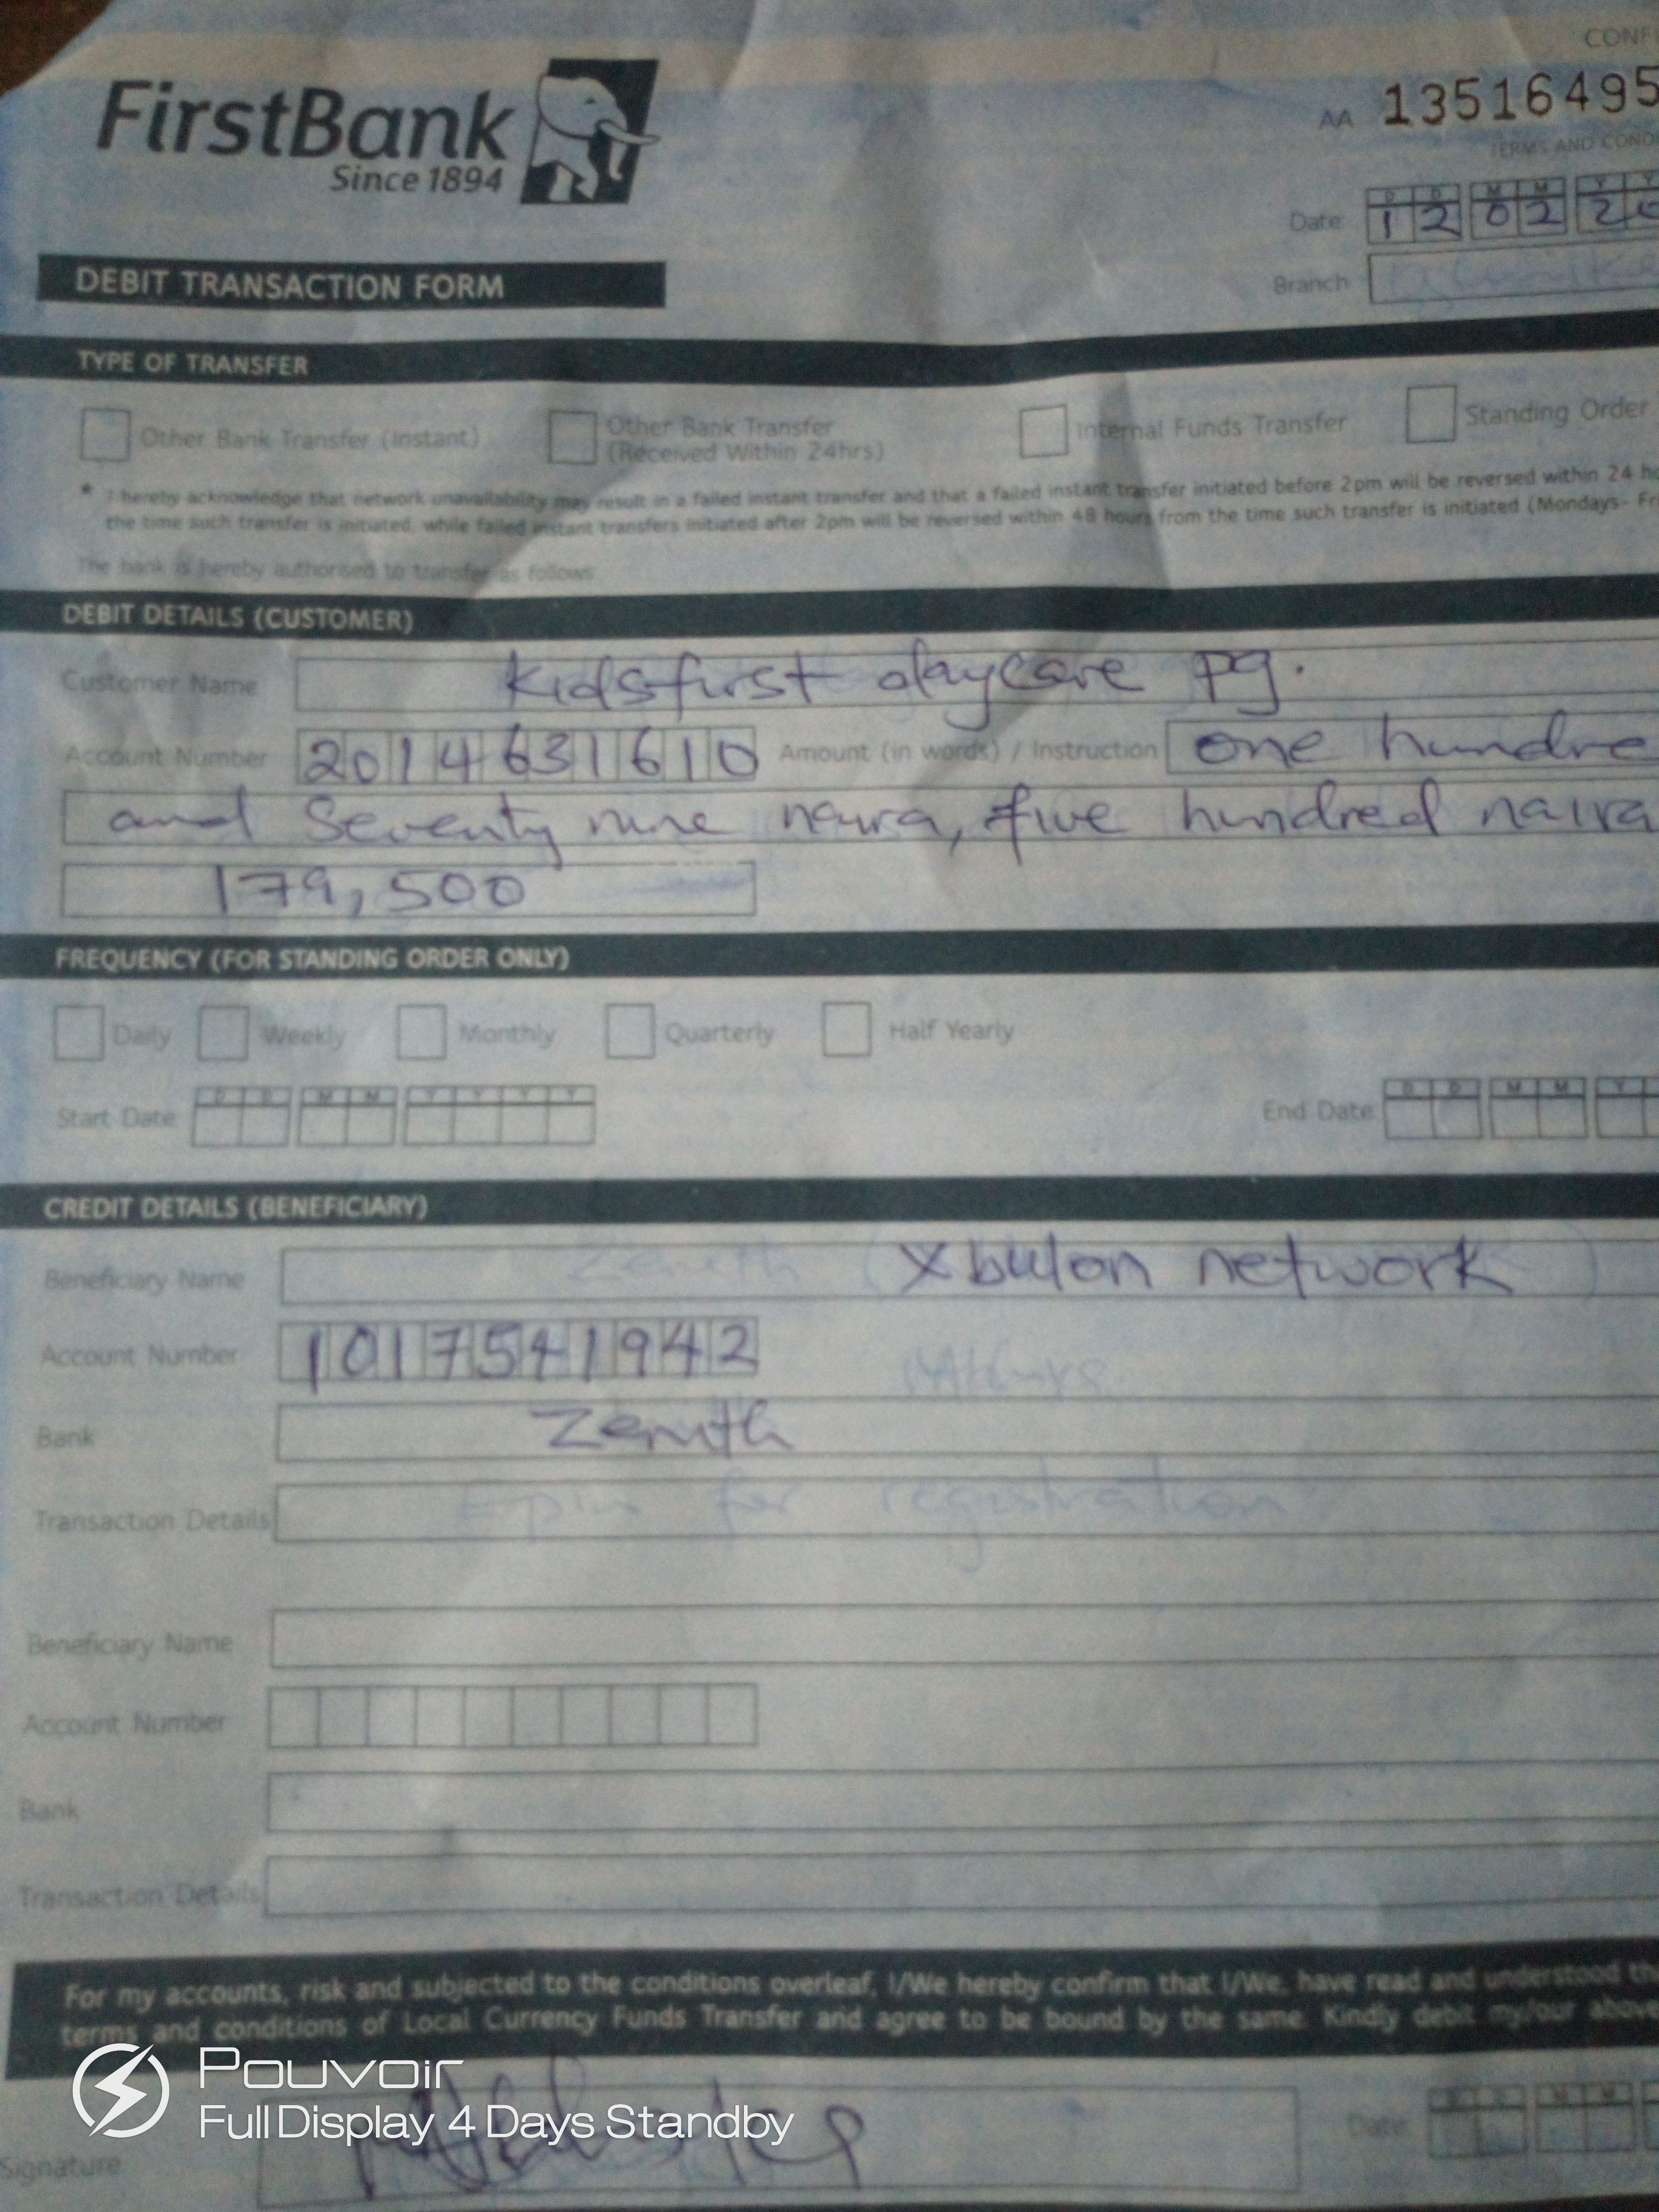 CONF
FirstBank
Since 1894
AA 13516495
TERMS AND COND
D D M M Y Y
Date 1 2 0 2 2 0
Branch
DEBIT TRANSACTION FORM
TYPE OF TRANSFER
Other Bank Transfer (Instant)
Other Bank Transfer
(Received Within 24hrs)
Internal Funds Transfer
Standing Order
* I hereby acknowledge that network unavailability may result in a failed instant transfer and that a failed instant transfer initiated before 2pm will be reversed within 24 ho
the time such transfer is initiated, while failed instant transfers initiated after 2pm will be reversed within 48 hours from the time such transfer is initiated (Mondays- Fri
The bank is hereby authorised to transfer as follows
DEBIT DETAILS (CUSTOMER)
Customer Name Kidsfirst daycare pg.
Account Number 2014631610 Amount (in words) / Instruction one hundre
and Seventy nine naira, five hundred naira
179,500
FREQUENCY (FOR STANDING ORDER ONLY)
Daily Weekly Monthly Quarterly Half Yearly
D D M M Y Y Y Y D D M M Y
Start Date End Date
CREDIT DETAILS (BENEFICIARY)
Beneficiary Name Zenith (Xbulon network)
Account Number 1017541942
Bank Zenith
Transaction Details Epin for registration
Beneficiary Name
Account Number
Bank
Transaction Details
For my accounts, risk and subjected to the conditions overleaf, I/We hereby confirm that I/We, have read and understood th
terms and conditions of Local Currency Funds Transfer and agree to be bound by the same. Kindly debit my/our above
Pouvoir
Full Display 4 Days Standby
D D M M
Date
Signature